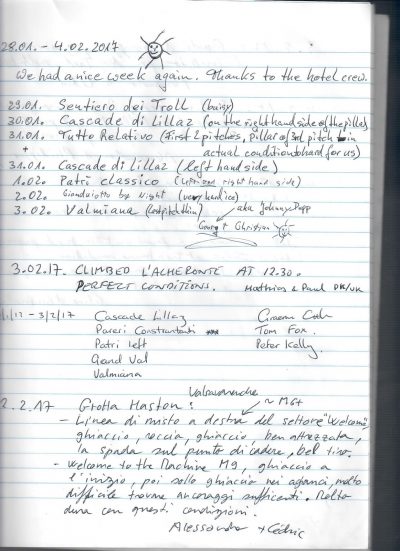 28.01. - 4.02.2017
We had a nice week again. Thanks to the hotel crew.
29.01. Sentiero dei Troll (busy)
30.01. Cascade di Lillaz (on the right hand side of the pillar)
31.01. Tutto Relativo (first 2 pitches, pillar of 3rd pitch thin
+ actual conditions to hard for us)
31.01. Cascade di Lillaz (left hand side)
1.02. Patri classico (right hand side)
2.02. by Night (very hard ice)
3.02. Valmiana (last pitch thin) aka Johnny Depp
Georg + Christian
3.02.17. CLIMBED L'ACHERONTE AT 12.30.
PERFECT CONDITIONS. Mathias & Paul DK/UK
- 3/2/17 Cascade Lillaz Graeme
Pareri Constrantanti Tom Fox.
Patri left Peter Kelly.
Grand Val
Valmiana
Valsavarenche
2.2.17 Grotta Haston: ~ M6+
- Linea di misto a destra del settore "Welcome"
ghiaccio, roccia, ghiaccio, ben attrezzata,
la spada sul punto di cadere, bel tiro.
- Welcome to the Machine M9, ghiaccio a
l'inizio, poi sello ghiaccio nei agganci, molto
difficile trovare ancoraggi sufficenti. Molto
dura con questi condizioni.
Alessandro + Cédric